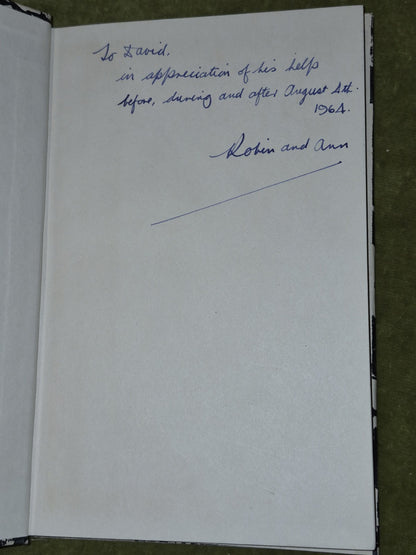 To David,
in appreciation of his help
before, during and after August 1st.
1964.
Robin and Ann